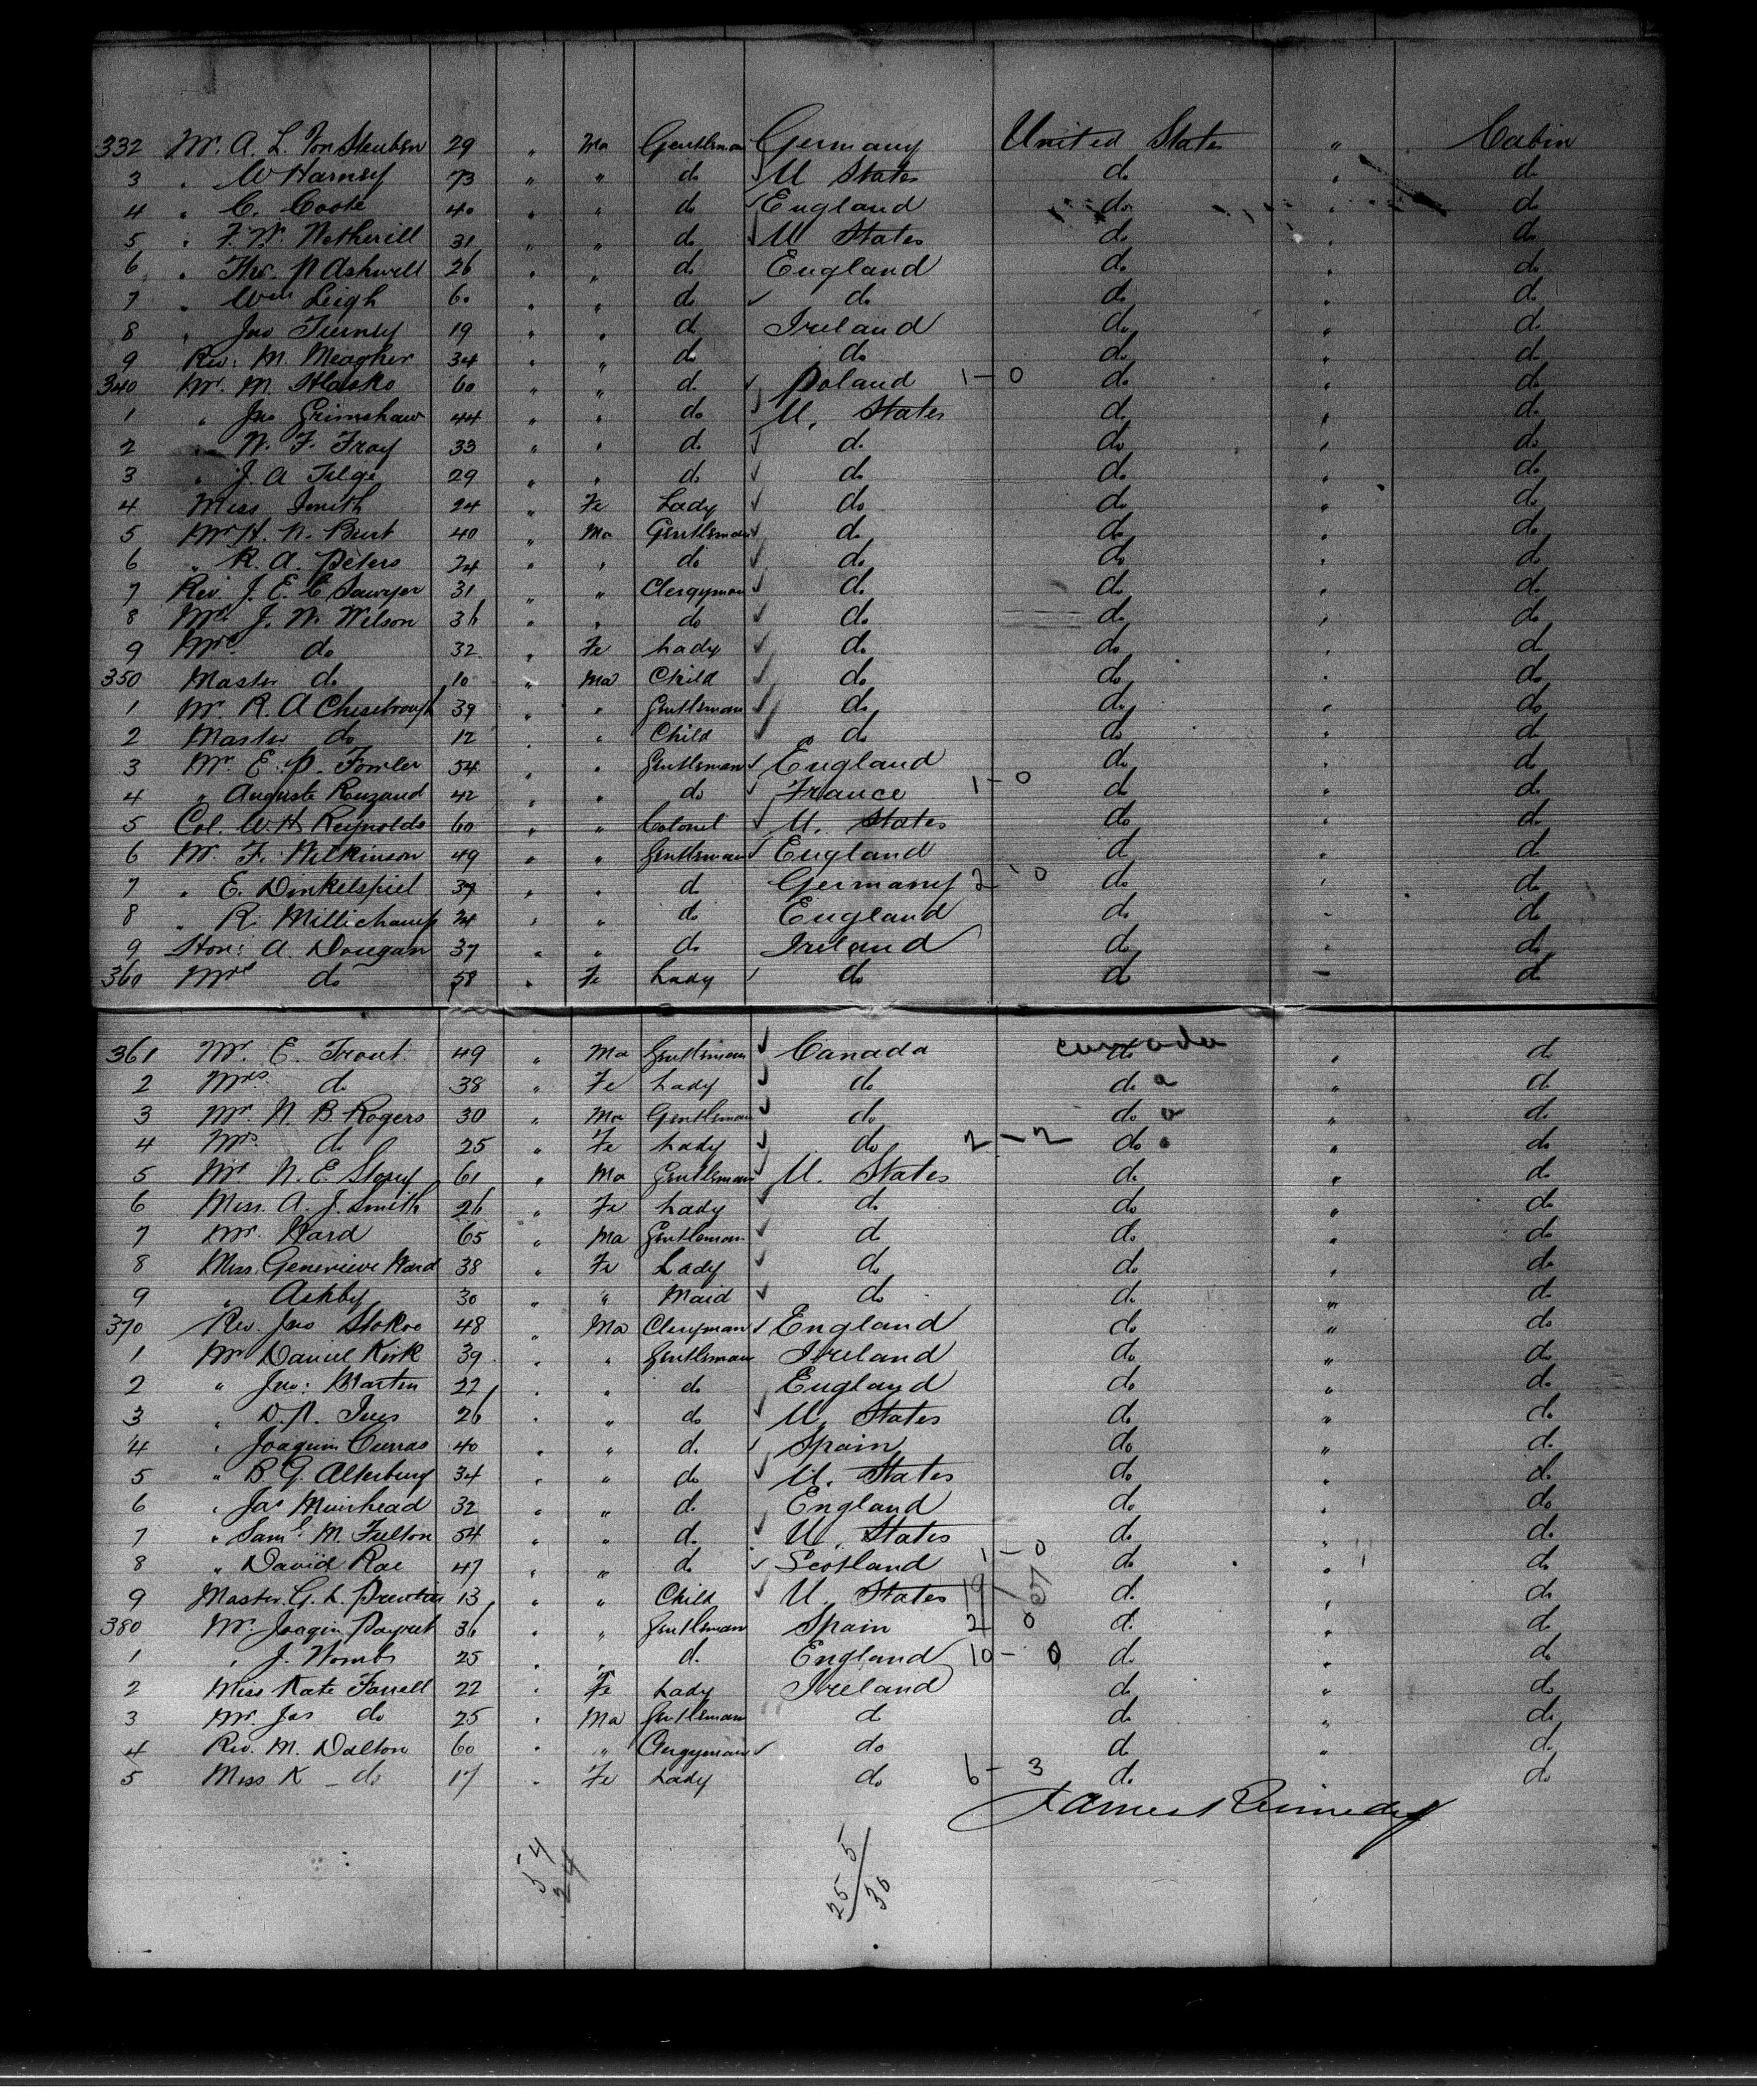 332 Mr. A. L. Von Steuben 29 " Ma Gentleman Germany United States " Cabin
3 " W Harney 73 " " do U States do " do
4 " C. Coote 40 " " do England do " do
5 " F. W. Wetherill 31 " " do U States do " do
6 " Thos. N Ashwell 26 " " do England do " do
7 " Wm Leigh 60 " " do do do " do
8 " Jno Tierney 19 " " do Ireland do " do
9 Rev: M. Meagher 34 " " do do do " do
340 Mr. M. Hlasko 60 " " do Poland 1-0 do " do
1 " Jno Grimshaw 44 " " do U. States do " do
2 " W. F. Fray 33 " " do do do " do
3 " J. A Tilge 29 " " do do do " do
4 Miss Smith 24 " Fe Lady do do " do
5 Mr H. N. Burt 40 " Ma Gentleman do do " do
6 " R. A. Peters 24 " " do do do " do
7 Rev. J. E. C Sawyer 31 " " Clergyman do do " do
8 Mr. J. W. Wilson 36 " " do do do " do
9 Mrs do 32 " Fe Lady do do " do
350 Master do 10 " Ma Child do do " do
1 Mr. R. A Chesebrough 39 " " Gentleman do do " do
2 Master do 12 " " Child do do " do
3 Mr. E. P. Fowler 54 " " Gentleman England do " do
4 " Auguste Rouzaud 42 " " do France 1-0 do " do
5 Col. W. H Reynolds 60 " " Colonel U. States do " do
6 Mr. F. Wilkinson 49 " " Gentleman England do " do
7 " E. Dinkelspiel 37 " " do Germany 2-0 do " do
8 " R. Millichamp 24 " " do England do " do
9 Hon: A. Dougan 37 " " do Ireland do " do
360 Mrs do 58 " Fe Lady do do " do
361 Mr. E. Trout 49 " Ma Gentleman Canada do canada " do
2 Mrs. do 38 " Fe Lady do do " do
3 Mr. N. B. Rogers 30 " Ma Gentleman do do " do
4 Mrs do 25 " Fe Lady do 2-2 do " do
5 Mr. N. E. Storey 61 " Ma Gentleman U. States do " do
6 Miss. A. J. Smith 26 " Fe Lady do do " do
7 Mr. Ward 65 " Ma Gentleman do do " do
8 Miss. Genevieve Ward 38 " Fe Lady do do " do
9 " Ashby 30 " " Maid do do " do
370 Rev. Jno Stokoe 48 " Ma Clergyman England do " do
1 Mr Daniel Kirk 39 " " Gentleman Ireland do " do
2 " Jno: Martin 22 " " do England do " do
3 " D. N. Ives 26 " " do U. States do " do
4 " Joaquim Curras 40 " " do Spain do " do
5 " B. G. Alterburg 34 " " do U. States do " do
6 " Jas Muirhead 32 " " do England do " do
7 " Saml. M. Fulton 54 " " do U. States do " do
8 " David Rae 47 " " do Scotland 1-0 do " do
9 Master. G. L. Prentiss 13 " " Child U. States 19 do " do
380 Mr. Joaqin Payret 36 " " Gentleman Spain 2 0 do " do
1 " J. Wombs 25 " " do England 10-0 do " do
2 Miss Kate Farrell 22 " Fe Lady Ireland do " do
3 Mr. Jas do 25 " Ma Gentleman do do " do
4 Rev. M. Dalton 60 " " Clergyman do do " do
5 Miss K - do 17 " Fe Lady do 6-3 do " do
James Kennedy
54
24
25 5
30